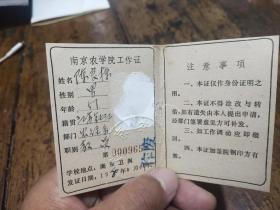 南京农学院工作证
姓名
性别 男
年龄 51
籍贯 江苏
部门
职别 教
№ 000965
学校地点：南京卫岗
发证日期：19 年 月
注意事项
一、本证仅作身份证明之用。
二、本证不得涂改与转借，如有遗失由本人提出申请，经部门签署意见方可补发。
三、如工作调动应即缴回。
四、本证加盖院钢印方有效。